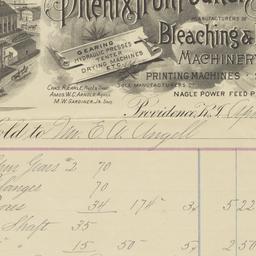 Phenix Iron Foundry
MANUFACTURERS OF
Bleaching &
MACHINERY
GEARING
HYDRAULIC PRESSES
TENTER
DRYING MACHINES
ETC.
PRINTING MACHINES
CHAS. R. EARLE, Prest & Treas.
AMOS W.C. ARNOLD, Agent
M.W. GARDINER, Jr. Secy.
SOLE MANUFACTURERS OF
NAGLE POWER FEED P
Providence, R.I. Apr
Sold to Mr. E. A. Angell
Gears #2 70
langes 70
34 174 3¢ 5 22
Shaft 35
" 15 50 5 2 50